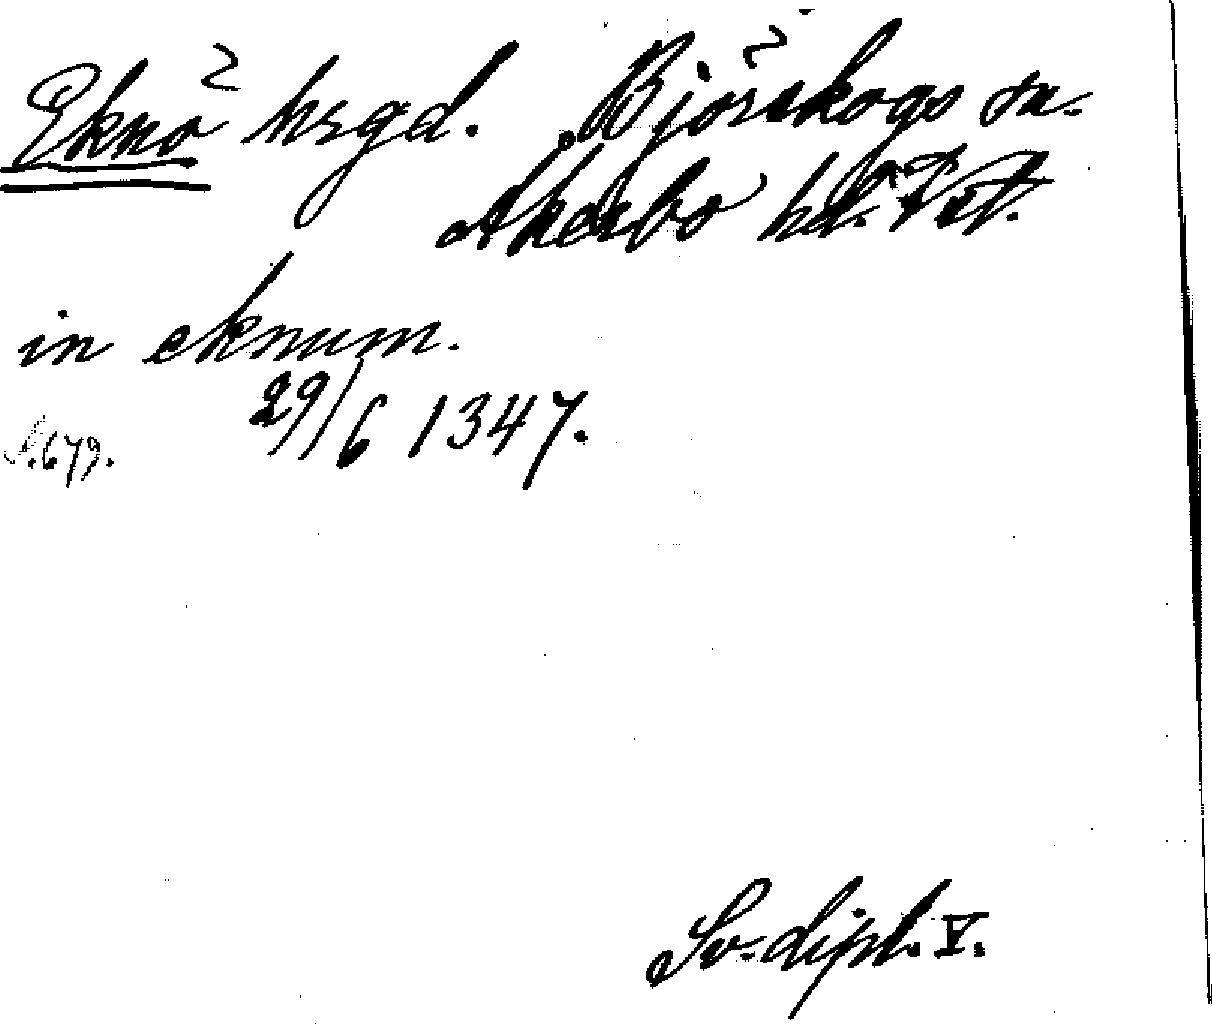 Eknö hrgd. Björskogs sn.
Åkerbo hd. Vstm.
in eknum.
29/6 1347.
S. 679.
Sv. dipl. V.